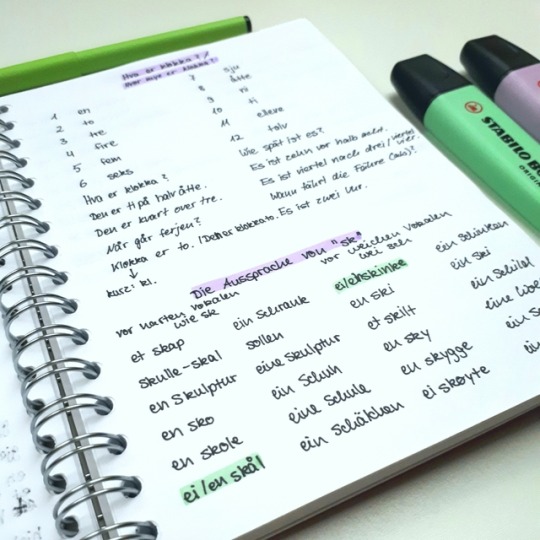 Hva er klokka? /
Hvor mye er klokka?
1 en
2 to
3 tre
4 fire
5 fem
6 seks
7 sju
8 åtte
9 ni
10 ti
11 elleve
12 tolv
Hva er klokka?
Den er ti på halv åtte.
Den er kvart over tre.
Når går ferjen?
Klokka er to. / Den er klokka to.
↓
kurz: kl.
Wie spät ist es?
Es ist zehn vor halb acht.
Es ist Viertel nach drei / viertel vier.
Wann fährt die Fähre (ab)?
Es ist zwei Uhr.
Die Aussprache von "sk"
vor harten Vokalen
wie sk
et skap
skulle - skal
en skulptur
en sko
en skole
ei/en skål
ein Schrank
sollen
eine Skulptur
ein Schuh
eine Schule
ein Schälchen
vor weichen Vokalen
wie sch
ei/en skinke
en ski
et skilt
en sky
en skygge
ei skøyte
ein Schinken
ein Ski
ein Schild
eine
ein
STABILO